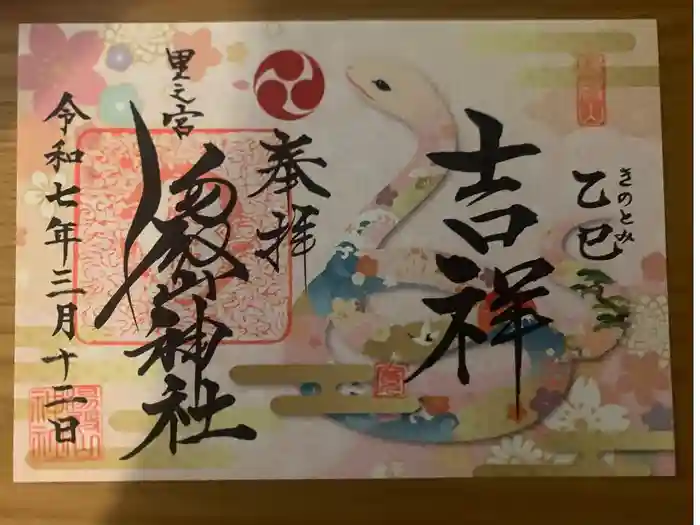 きのとみ
乙巳
吉祥
奉拝
里之宮
湯殿山神社
令和七年三月十二日